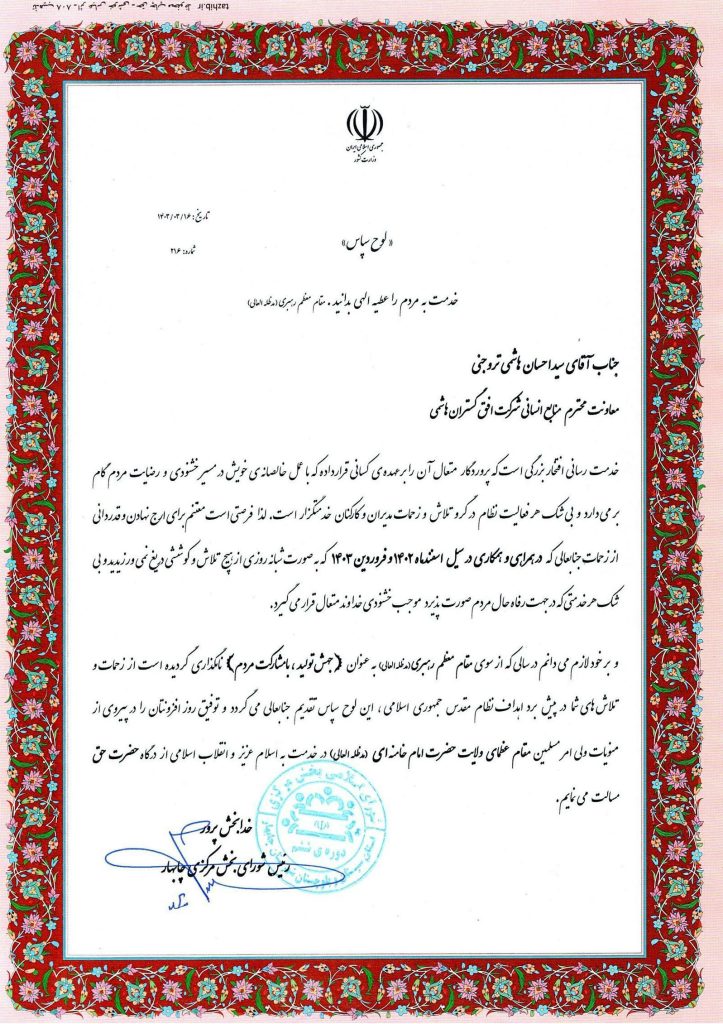 tazhib.ir
جمهوری اسلامی ایران
وزارت کشور
تاریخ: ۱۴۰۳/۰۳/۱۶
« لوح سپاس»
شماره: ۲۱۶
خدمت به مردم را عطیه الهی بدانید . مقام معظم رهبری (مدظله العالی)
جناب آقای سید احسان هاشمی تروجنی
معاونت محترم منابع انسانی شرکت افق گستران هاشمی
خدمت رسانی افتخار بزرگی است که پروردگار متعال آن را بر عهده ی کسانی قرار داده که با عمل خالصانه ی خویش در مسیر خشنودی و رضایت مردم گام
بر می دارد و بی شک هر فعالیت نظام در گرو تلاش و زحمات مدیران و کارکنان خدمتگزار است. لذا فرصتی است مغتنم برای ارج نهادن و قدردانی
از زحمات جنابعالی که در همراهی و همکاری در سیل اسفندماه ۱۴۰۲ و فروردین ۱۴۰۳ که به صورت شبانه روزی از هیچ تلاش و کوششی دریغ نمی ورزیدید و بی
شک هر خدمتی که در جهت رفاه حال مردم صورت پذیرد موجب خشنودی خداوند متعال قرار می گیرد.
و بر خود لازم می دانم در سالی که از سوی مقام معظم رهبری (مدظله العالی) به عنوان (جهش تولید ، با مشارکت مردم) نامگذاری گردیده است از زحمات و
تلاش های شما در پیش برد اهداف نظام مقدس جمهوری اسلامی ، این لوح سپاس تقدیم جنابعالی می گردد و توفیق روز افزونتان را در پیروی از
منویات ولی امر مسلمین مقام عظمای ولایت حضرت امام خامنه ای (مدظله العالی) در خدمت به اسلام عزیز و انقلاب اسلامی از درگاه حضرت حق
مسالت می نمایم.
خدابخش پرور
رئیس شورای بخش مرکزی چابهار
شورای اسلامی بخش مرکزی
دوره ی ششم